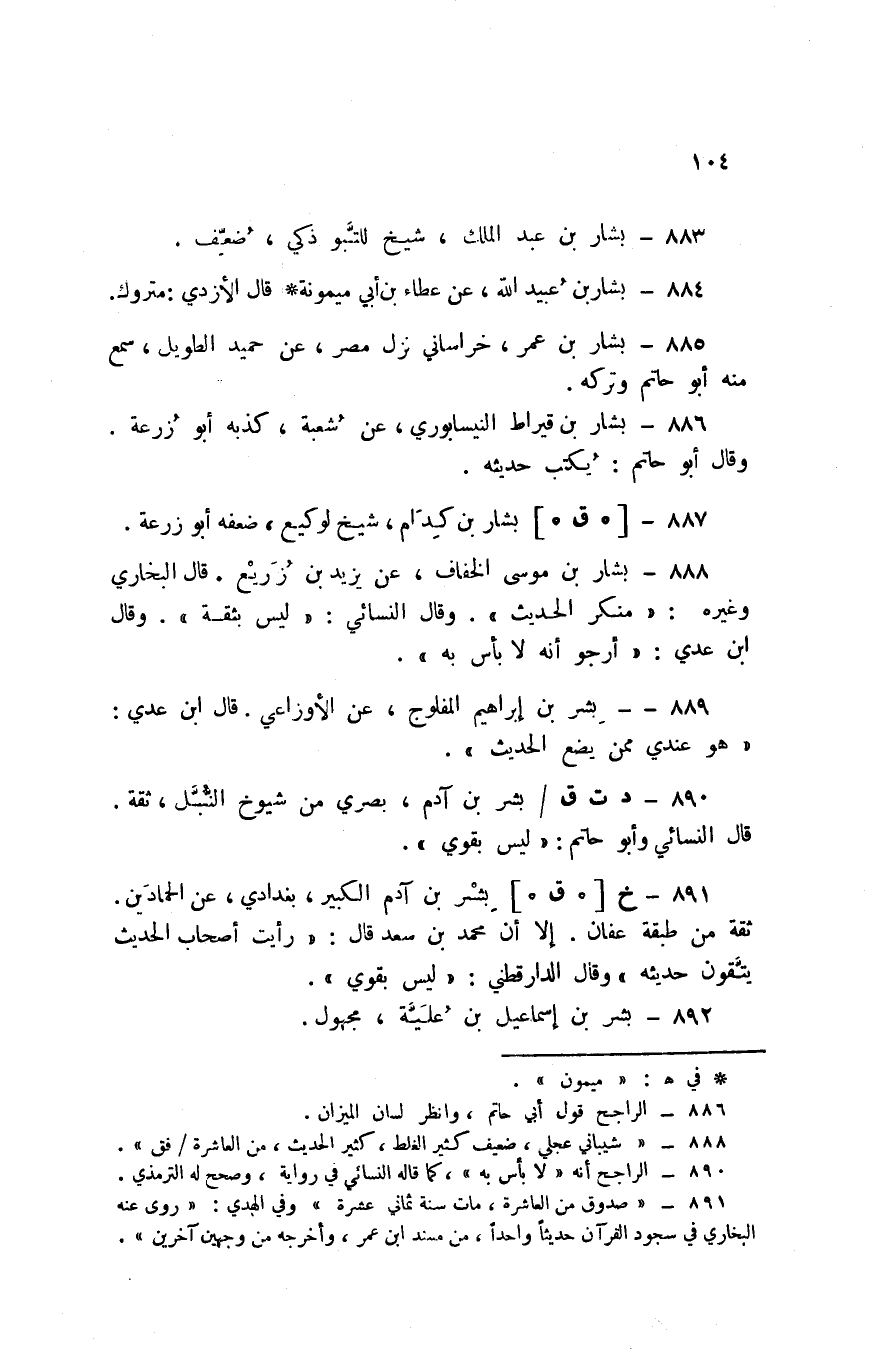 ١٠٤
٨٨٣ - بشار بن عبد الملك ، شيخ للتَّبوذكي ، ضُعِّف .
٨٨٤ - بشار بن عُبيد الله ، عن عطاء بن أبي ميمونة* قال الأزدي : متروك.
٨٨٥ - بشار بن عمر ، خراساني نزل مصر ، عن حميد الطويل ، سمع
منه أبو حاتم وتركه .
٨٨٦ - بشار بن قيراط النيسابوري ، عن شُعبة ، كذبه أبو زُرعة .
وقال أبو حاتم : يُكتب حديثه .
٨٨٧ - [ ٥ ق ٥ ] بشار بن كِدَام ، شيخ لوكيع ، ضعفه أبو زرعة .
٨٨٨ - بشار بن موسى الخفاف ، عن يزيد بن زُرَيْع . قال البخاري
وغيره : « منكر الحديث » . وقال النسائي : « ليس بثقة » . وقال
ابن عدي : « أرجو أنه لا بأس به » .
٨٨٩ - - بِشر بن إبراهيم المفلوج ، عن الأوزاعي . قال ابن عدي :
« هو عندي ممن يضع الحديث » .
٨٩٠ - د ت ق / بشر بن آدم ، بصري من شيوخ النُّبَّل ، ثقة .
قال النسائي وأبو حاتم : « ليس بقوي » .
٨٩١ - خ [ ٥ ق ٥ ] بِشْر بن آدم الكبير ، بغدادي ، عن الحمادَين .
ثقة من طبقة عفان . إلا أن محمد بن سعد قال : « رأيت أصحاب الحديث
يتَّقون حديثه » وقال الدارقطني : « ليس بقوي » .
٨٩٢ - بشر بن إسماعيل بن عُلَيَّة ، مجهول .
* في ه : « ميمون » .
٨٨٦ - الراجح قول أبي حاتم ، وانظر لسان الميزان .
٨٨٨ - « شيباني عجلي ، ضعيف كثير الغلط ، كثير الحديث ، من العاشرة / فق » .
٨٩٠ - الراجح أنه « لا بأس به » ، كما قاله النسائي في رواية ، وصحح له الترمذي .
٨٩١ - « صدوق من العاشرة ، مات سنة ثماني عشرة » وفي الهدي : « روى عنه
البخاري في سجود القرآن حديثاً واحداً ، من مسند ابن عمر ، وأخرجه من وجهين آخرين » .